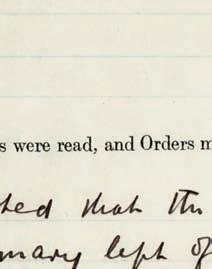 s were read, and Orders m
ted that the
mary left of